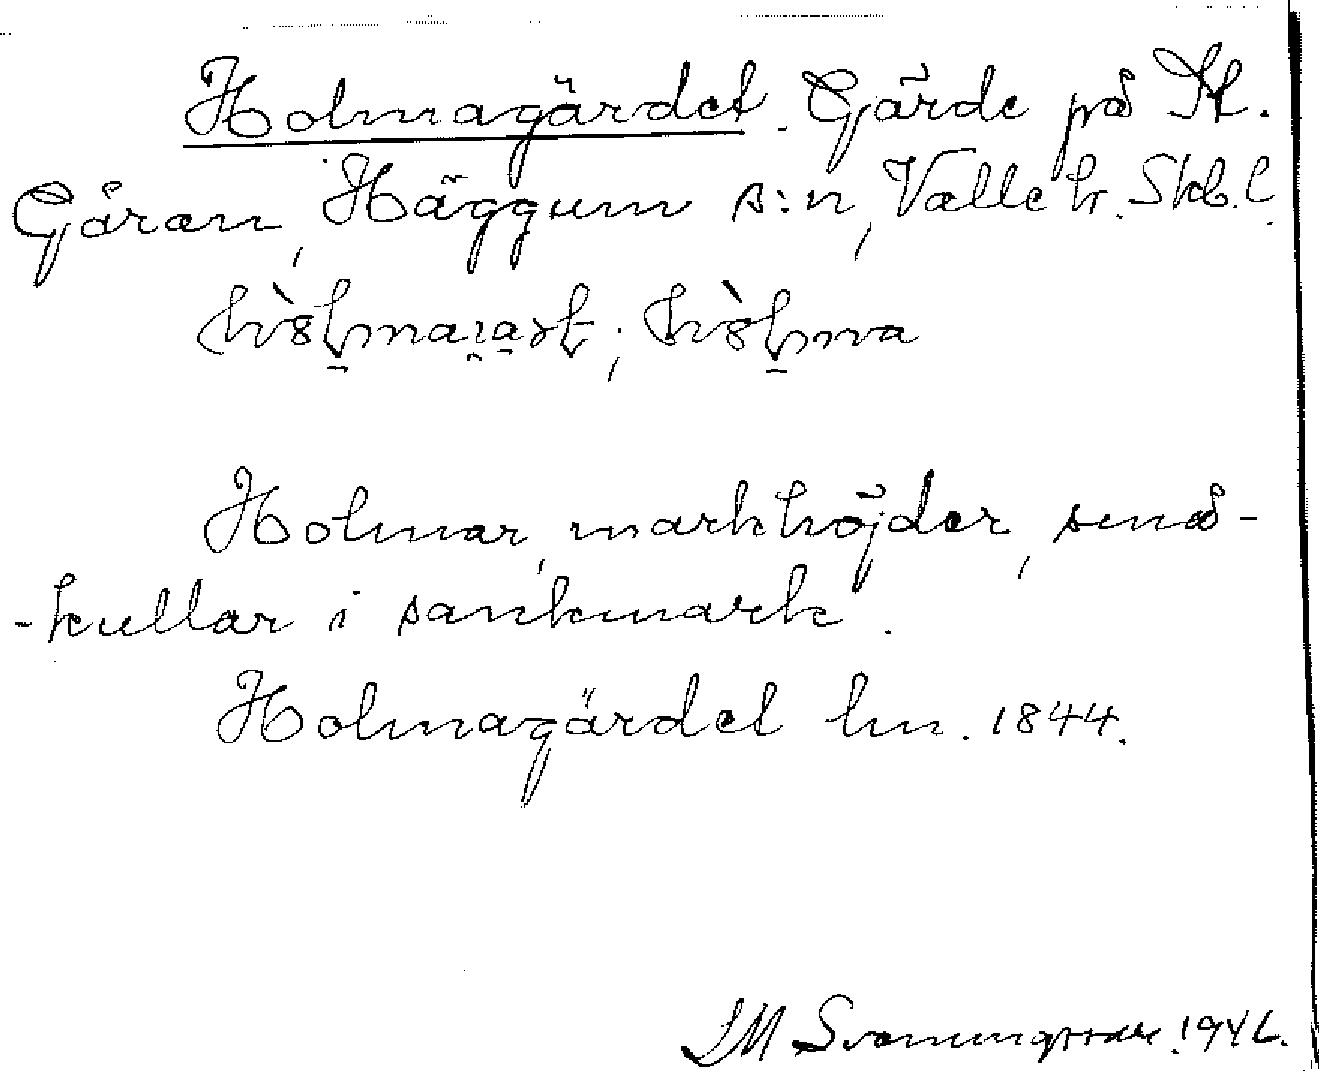 Holmagärdet. Gärde på St.
Gåran, Häggum s:n, Valle hr. Skb.l.
Holmar, markhöjder, små-
-kullar i sankmark.
Holmagärdet lm. 1844.
JM Svenningsson. 1946.